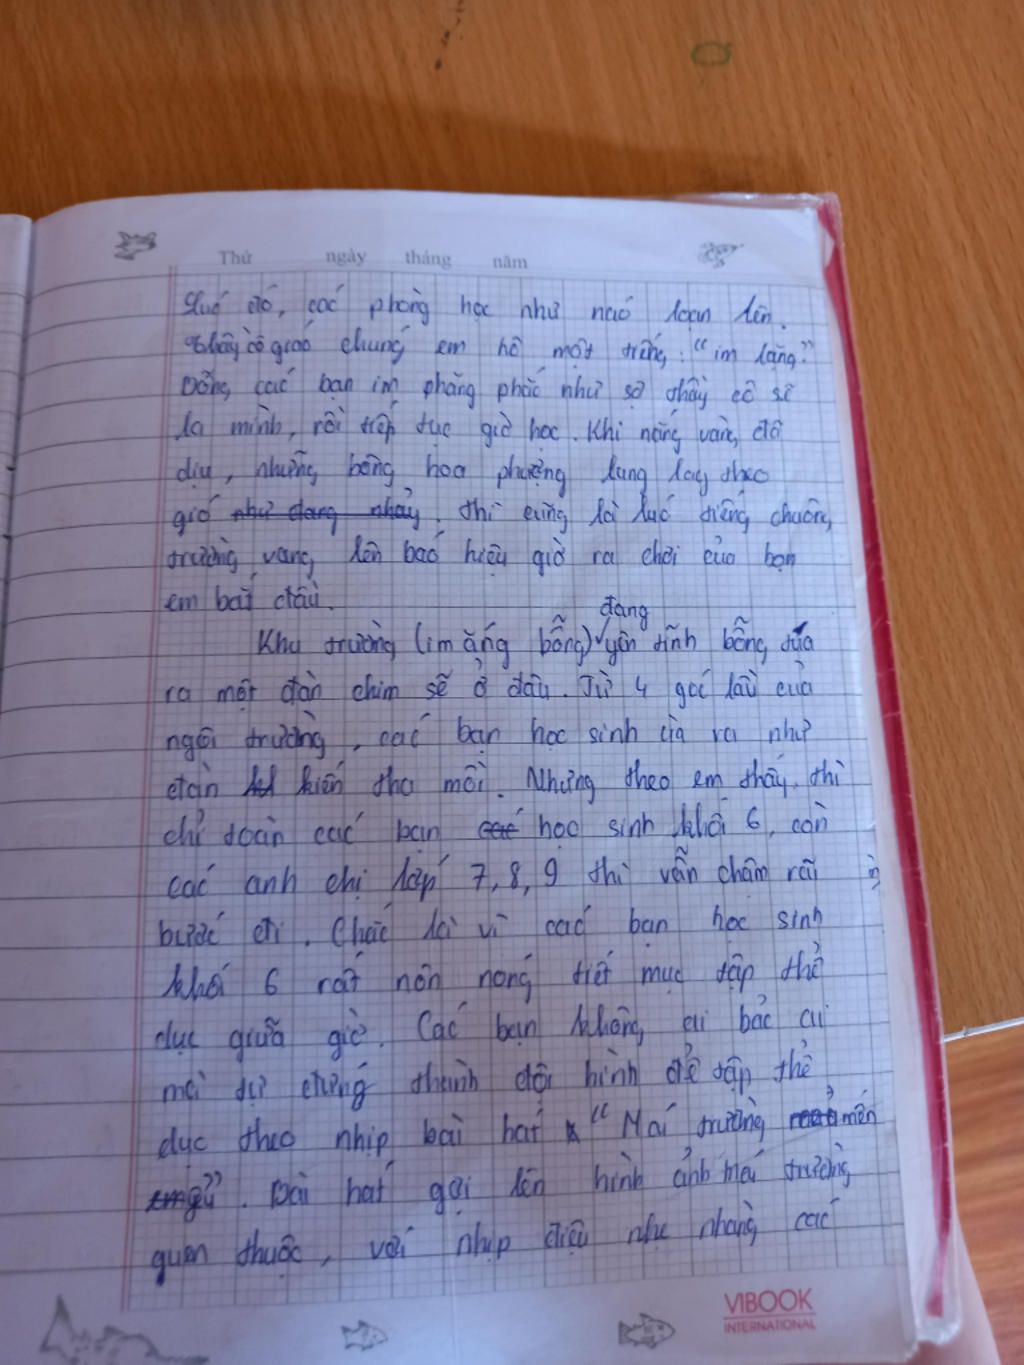 Thứ ngày tháng năm
lúc đó, các phòng học như náo loạn lên.
Thầy cô giáo chúng em hô một tiếng: “im lặng”
Bỗng các bạn im phăng phắc như sợ thầy cô sẽ
la mình, rồi tiếp tục giờ học. Khi nắng vàng đã
dịu, những bông hoa phượng lung lay theo
gió như đang nhảy. thì cũng là lúc tiếng chuông
trường vang lên báo hiệu giờ ra chơi của bọn
em bắt đầu.
đang
Khu trường (im ắng bỗng) yên tĩnh bỗng tủa
ra một đàn chim sẽ ở đâu. Từ 4 góc lầu của
ngôi trường, các bạn học sinh ùa ra như
đàn kiến tha mồi. Nhưng theo em thấy, thì
chỉ toàn các bạn các học sinh khối 6, còn
các anh chị lớp 7, 8, 9 thì vẫn chậm rãi
bước đi. Chắc là vì các bạn học sinh
khối 6 rất nôn nóng tiết mục tập thể
dục giữa giờ. Các bạn không ai bảo ai
mà tự đứng thành đội hình để tập thể
dục theo nhịp bài hát “Mái trường mến
yêu”. Bài hát gợi lên hình ảnh mái trường
quen thuộc, với nhịp điệu nhẹ nhàng các
VIBOOK
INTERNATIONAL